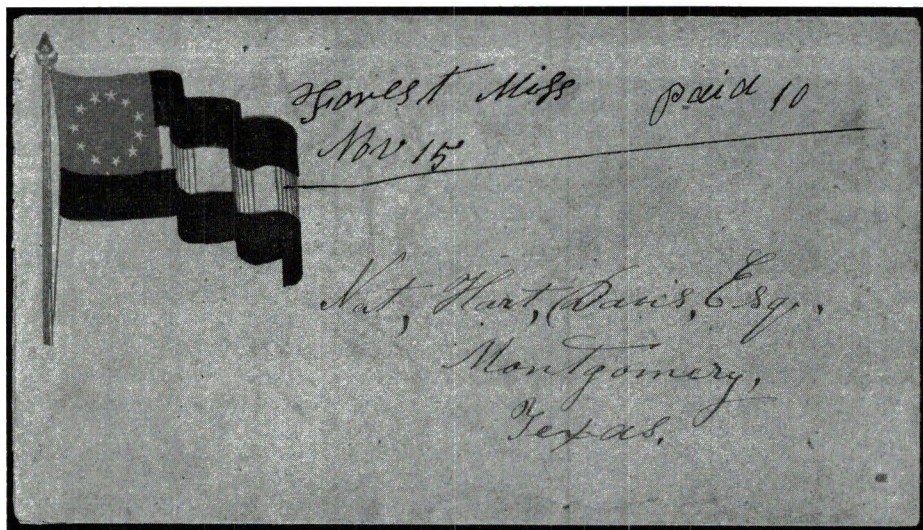 Forest Miss Paid 10
Nov 15
Nat, Hart, Davis, Esq.
Montgomery,
Texas.